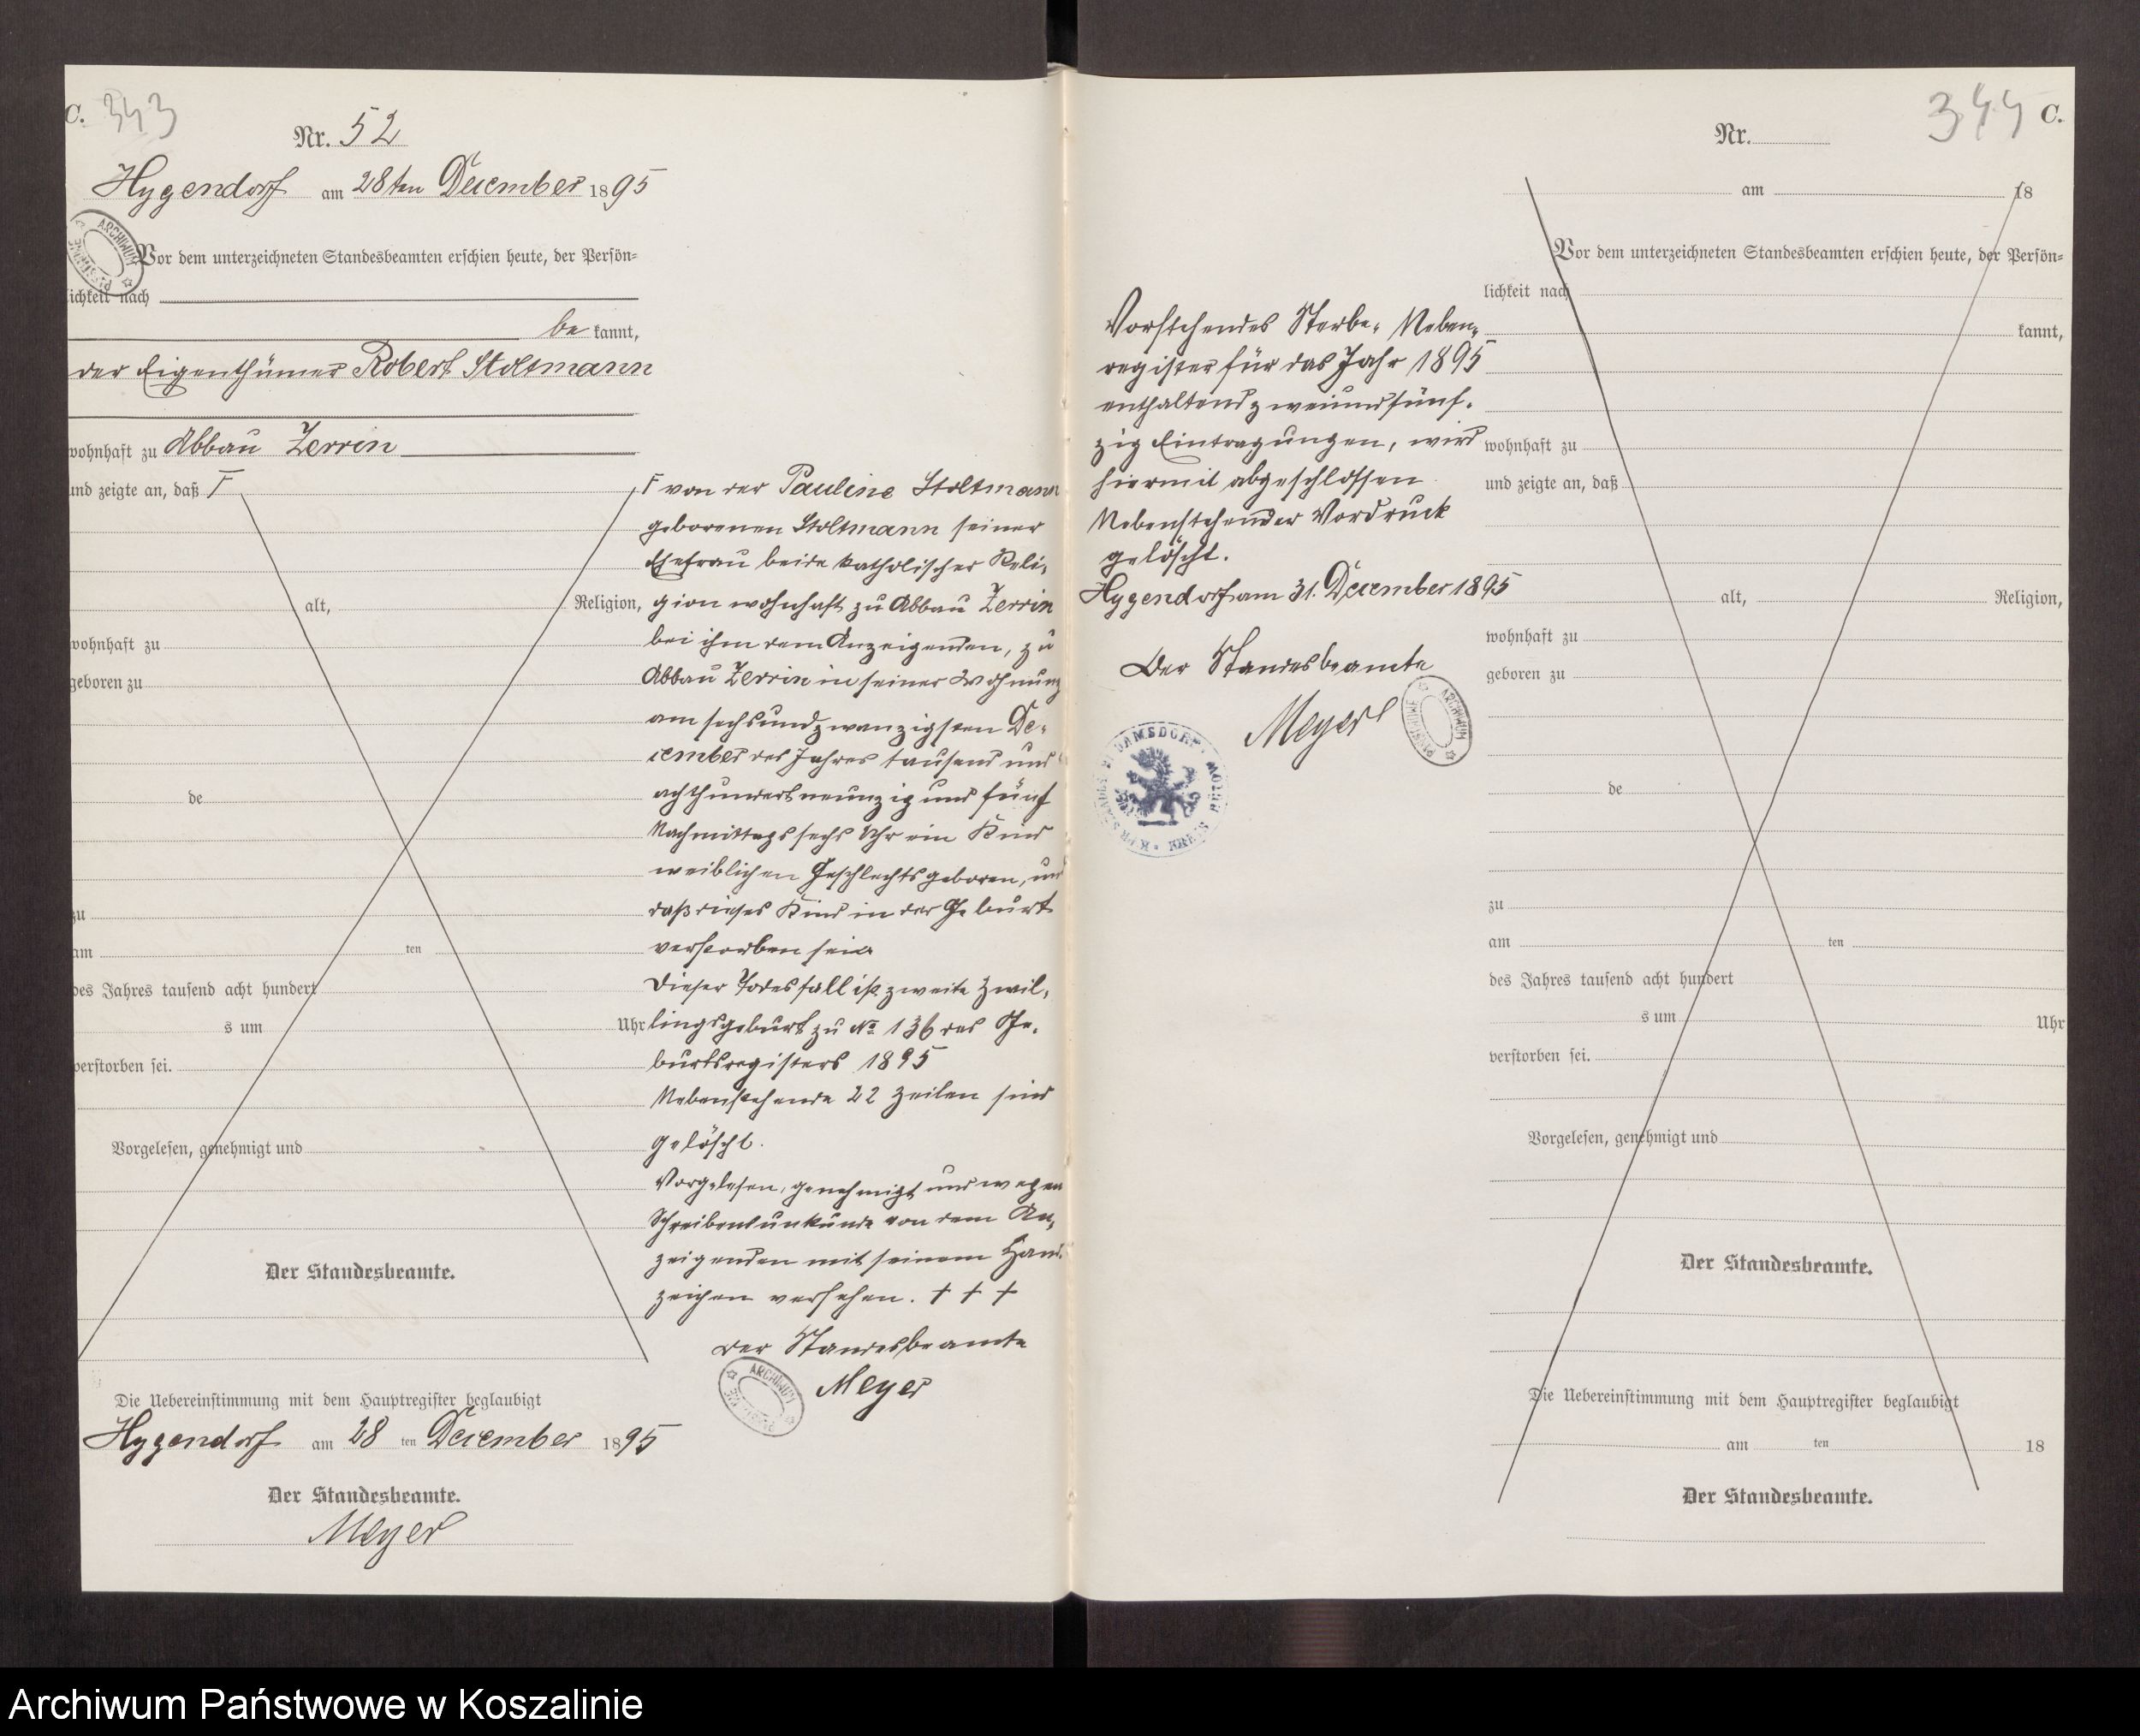 C. 343
Nr. 52
Hygendorf am 28ten December 1895
Vor dem unterzeichneten Standesbeamten erschien heute, der Persön=
lichkeit nach
be kannt,
der Eigenthümer Robert Stoltmann
wohnhaft zu Abbau Zerrin
und zeigte an, daß Γ
alt, Religion,
wohnhaft zu
geboren zu
de
zu
am ten
des Jahres tausend acht hundert
s um Uhr
verstorben sei.
Vorgelesen, genehmigt und
Der Standesbeamte.
Die Uebereinstimmung mit dem Hauptregister beglaubigt
Hygendorf am 28 ten December 1895
Der Standesbeamte.
Meyer
Γ von der Pauline Stoltmann
geborenen Stoltmann seiner
Ehefrau beide katholischer Reli-
gion wohnhaft zu Abbau Zerrin
bei ihm dem Anzeigenden, zu
Abbau Zerrin in seiner Wohnung
am sechsundzwanzigsten De-
cember des Jahres tausend und
achthundert neunzig und fünf
Nachmittags sechs Uhr ein Kind
weiblichen Geschlechts geboren, und
daß dieses Kind in der Geburt
verstorben sei
Dieser Todesfall ist zweite Zwil-
lingsgeburt zu No 136 des Ge-
burtsregisters 1895
Nebenstehende 22 Zeilen sind
gelöscht.
Vorgelesen, genehmigt und wegen
Schreibensunkunde von dem An-
zeigenden mit seinem Hand-
zeichen versehen. + + +
Der Standesbeamte
Meyer
ARCHIWUM PAŃSTWOWE
Vorstehendes Sterbe-Neben-
register für das Jahr 1895
enthaltend zweiundfünf-
zig Eintragungen, wird
hiermit abgeschlossen
Nebenstehender Vordruck
gelöscht.
Hygendorf am 31. December 1895
Der Standesbeamte
Meyer
ARCHIWUM PAŃSTWOWE
344 C.
Nr.
am 18
Vor dem unterzeichneten Standesbeamten erschien heute, der Persön=
lichkeit nach
kannt,
wohnhaft zu
und zeigte an, daß
alt, Religion,
wohnhaft zu
geboren zu
de
zu
am ten
des Jahres tausend acht hundert
s um Uhr
verstorben sei.
Vorgelesen, genehmigt und
Der Standesbeamte.
Die Uebereinstimmung mit dem Hauptregister beglaubigt
am ten 18
Der Standesbeamte.
Archiwum Państwowe w Koszalinie